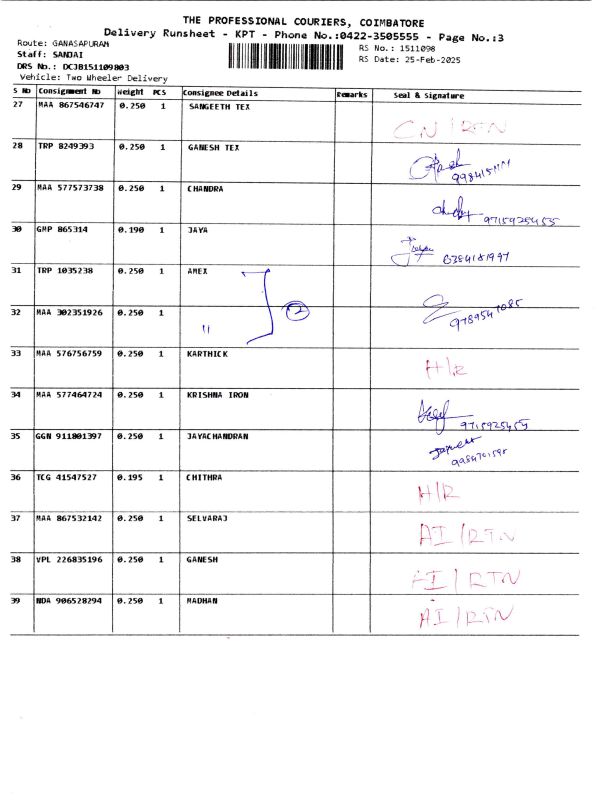 THE PROFESSIONAL COURIERS, COIMBATORE
Delivery Runsheet - KPT - Phone No.:0422-3505555 - Page No.:3
Route: GANASAPURAM
RS No.: 1511098
Staff: SANJAI
RS Date: 25-Feb-2025
DRS No.: DCJB151109803
Vehicle: Two Wheeler Delivery
S No Consignment No Weight PCS Consignee Details Remarks Seal & Signature
27 MAA 867546747 0.250 1 SANGEETH TEX
CN / RTN
28 TRP 8249393 0.250 1 GANESH TEX
29 MAA 577573738 0.250 1 CHANDRA
9715925455
30 GMP 865314 0.190 1 JAYA
6384181997
31 TRP 1035238 0.250 1 AMEX
2
32 MAA 302351926 0.250 1 "
9789547085
33 MAA 576756759 0.250 1 KARTHICK
H/R
34 MAA 577464724 0.250 1 KRISHNA IRON
9715925455
35 GGN 911801397 0.250 1 JAYACHANDRAN
36 TCG 41547527 0.195 1 CHITHRA
H/R
37 MAA 867532142 0.250 1 SELVARAJ
AI / RTN
38 VPL 226835196 0.250 1 GANESH
AI / RTN
39 NDA 906528294 0.250 1 MADHAN
AI / RTN